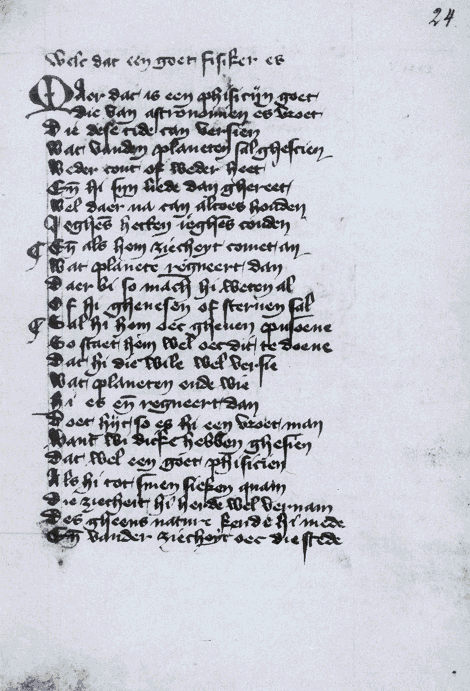 24
Welc dat een goet fisiker es
Maer dat is een phisicijn goet
die van astronomien es vroet
Die dese tide can versien
Wat vanden planeten sal ghescien
Weder cout of weder heet
Eñ hi sijn liede dan ghereet
Wel daer na can altoes houden
Jeghēs hetten jeghēs couden
Eñ als hem ziecheyt comet an
Wat planete regneert dan
Daer bi so mach hi weten al
Of hi ghenesen of steruen sal
Sal hi hem oec gheuen pusoene
So staet hem wel oec dit te doene
Dat hi die wile wel versie
Wat planeten ende wie
Hi es eñ regneert dan
Doet hijt so es hi een vroet man
Want wi dicke hebben ghesien
Dat wel een goet phisicien
Als hi tot sinen sieken quam
Die ziecheit hi herde wel vernam
Des gheens nature kende hi mede
Eñ vander ziecheyt oec die stede